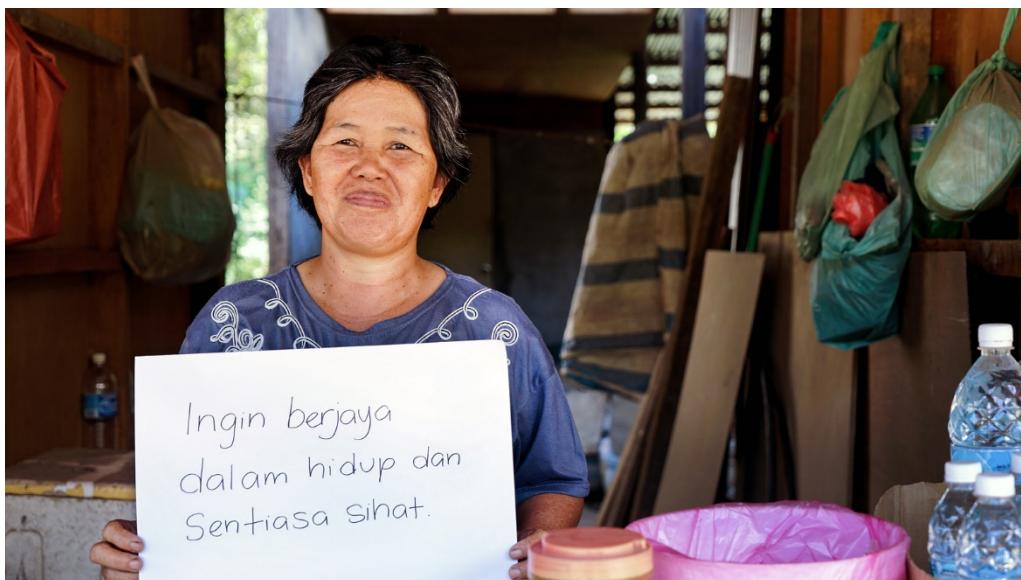 Ingin berjaya
dalam hidup dan
Sentiasa sihat.